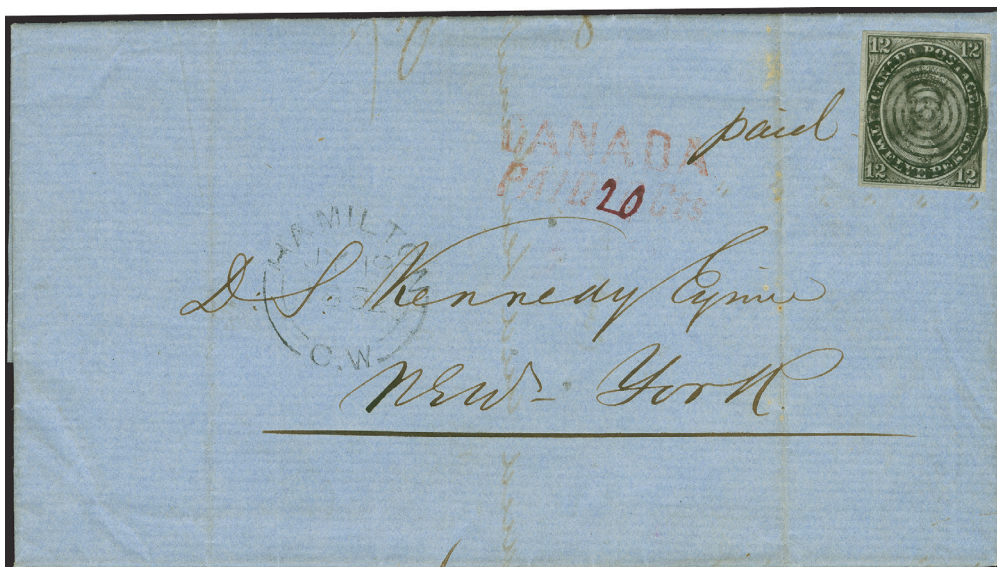 12 12
CANADA POSTAGE
TWELVE PENCE
12 12
paid
CANADA
PAID 20 Cts
HAMILTON
1852
C.W.
D. S. Kennedy
New-York